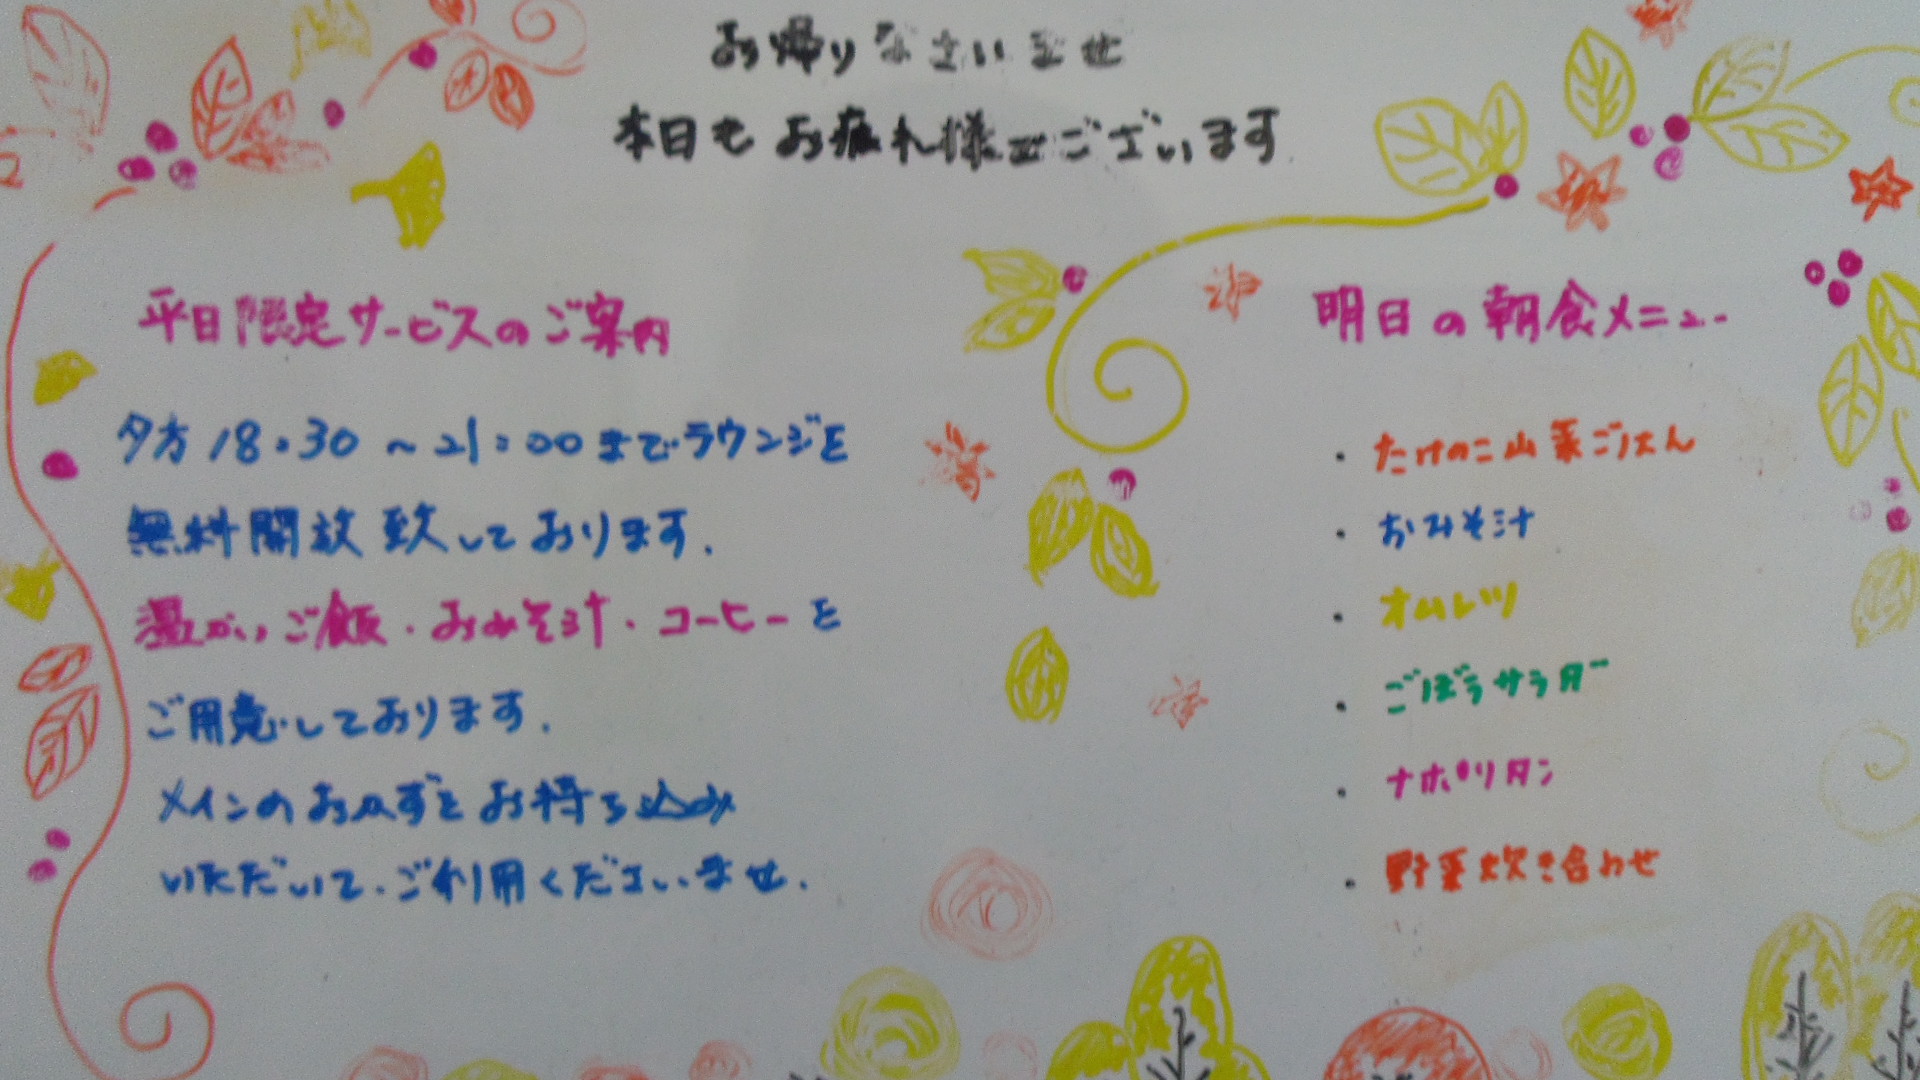 お帰りなさいませ
本日もお疲れ様でございます
平日限定サービスのご案内
夕方18:30～21:00までラウンジを
無料開放致しております.
温かいご飯・おみそ汁・コーヒーを
ご用意しております.
メインのおかずをお持ち込み
いただいて、ご利用くださいませ.
明日の朝食メニュー
・たけのこ山菜ごはん
・おみそ汁
・オムレツ
・ごぼうサラダー
・ナポリタン
・野菜炊き合わせ